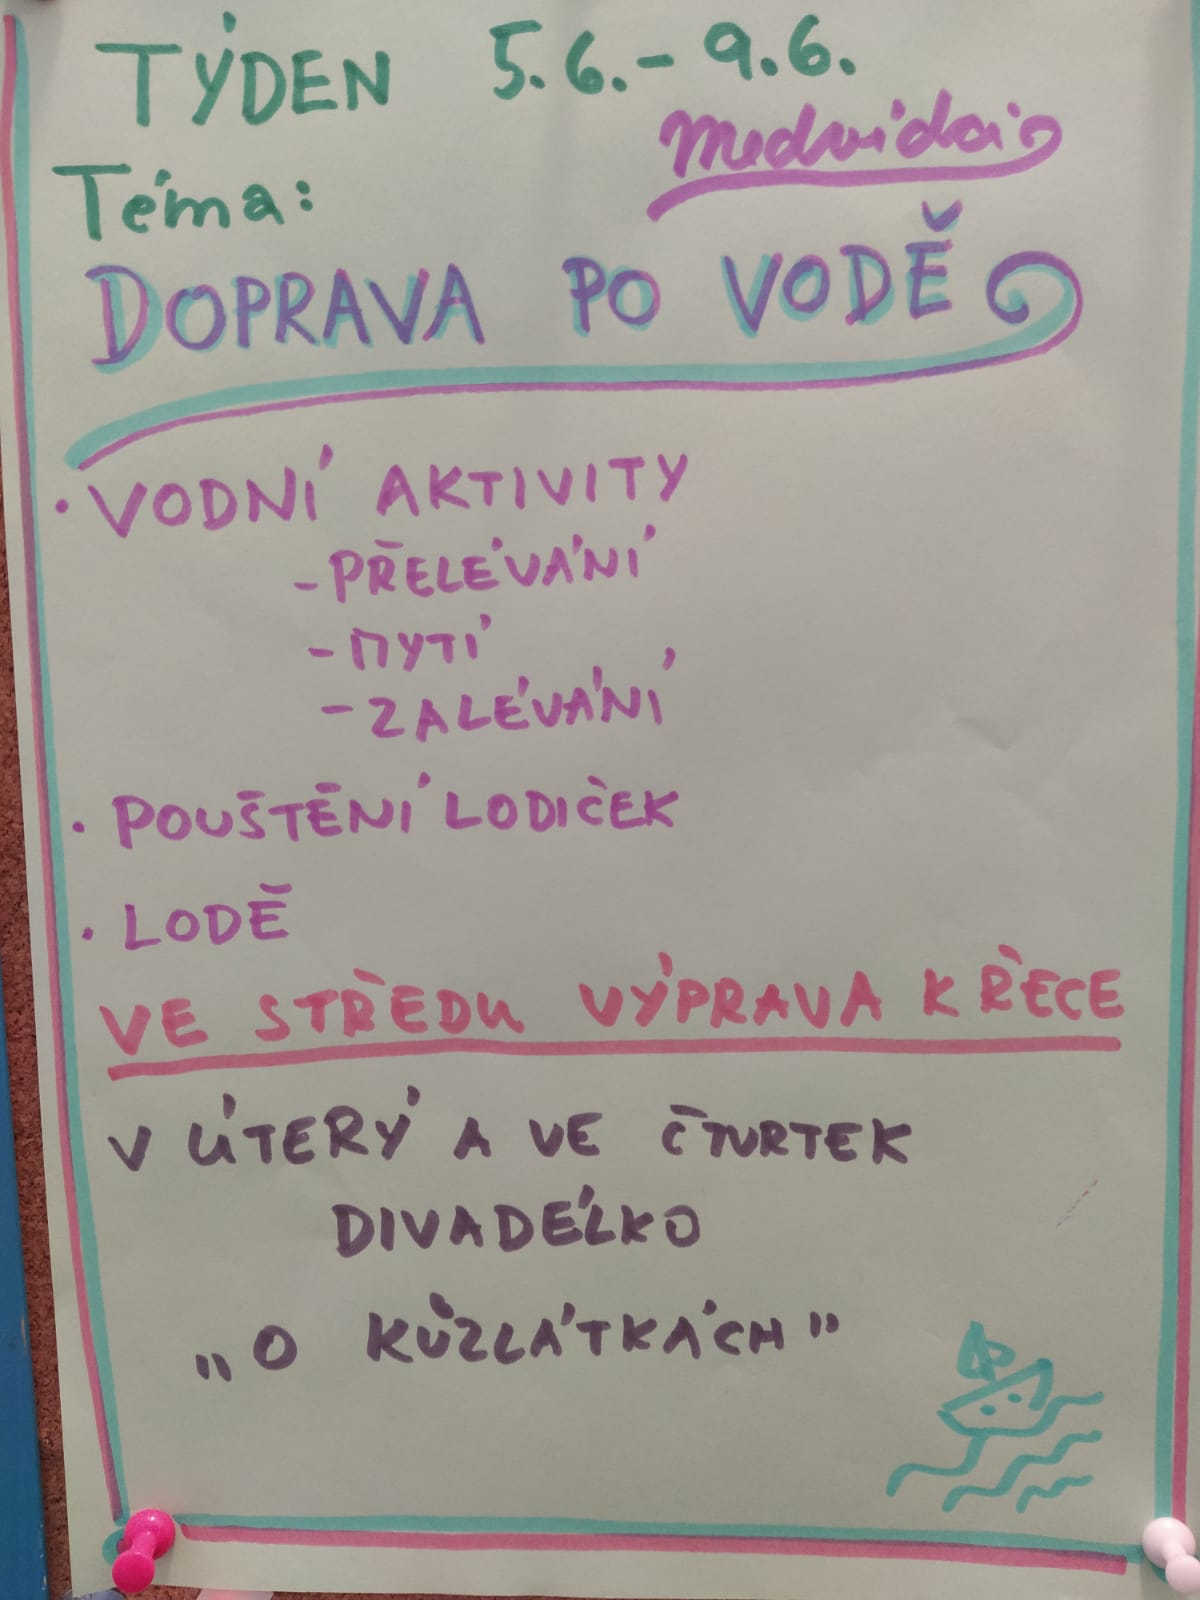 TÝDEN 5.6.-9.6.
Medvídci
Téma:
DOPRAVA PO VODĚ
· VODNÍ AKTIVITY
- PŘELÉVÁNÍ
- MYTÍ
- ZALÉVÁNÍ
· POUŠTĚNÍ LODIČEK
· LODĚ
VE STŘEDU VÝPRAVA K ŘECE
V ÚTERÝ A VE ČTVRTEK
DIVADÉLKO
„O KŮZLÁTKÁCH”